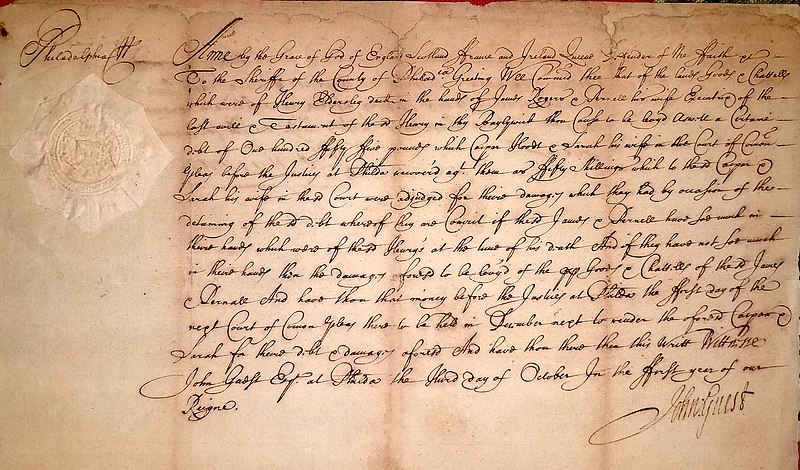 Philadelphia ss
Anne by the Grace of God of England Scotland ffrance and Ireland Queen Defender of the ffaith &c
To the Sheriffe of the County of Philadia Greeting Wee Comand thee that of the lands Goods & Chattells
which were of Henry Elderslig decd in the hands of James Rogers & Pernell his wife Executrix of the
last will & Testament of the sd Henry in thy Baylywick thou Cause to be levyd aswell a Certaine
debt of One hundred ffifty ffive pounds which Casper Hoodt & Sarah his wife in the Court of Comon
Pleas before the Justices at Philda recoverd agt them as ffifty Shillings which to the sd Casper &
Sarah his wife in the sd Court were adjudged for theire damages which they had by occasion of the
detaining of the sd debt whereof they are Convict if the sd James & Pernell have soe much in
theire hands which were of the sd Henry's at the time of his death And if they have not soe much
in theire hands then the damages aforesd to be levy'd of the Goods & Chattells of the sd James
& Pernall And have thou that money before the Justices at Philda the ffirst day of the
next Court of Comon Pleas there to be held in December next to render the aforesd Casper &
Sarah for there debt & damages aforesd And have thou there then this Writt Wittnesse
John Guest Esqr. at Philda the Third day of October In the ffirst year of our
Reigne.
John Guest